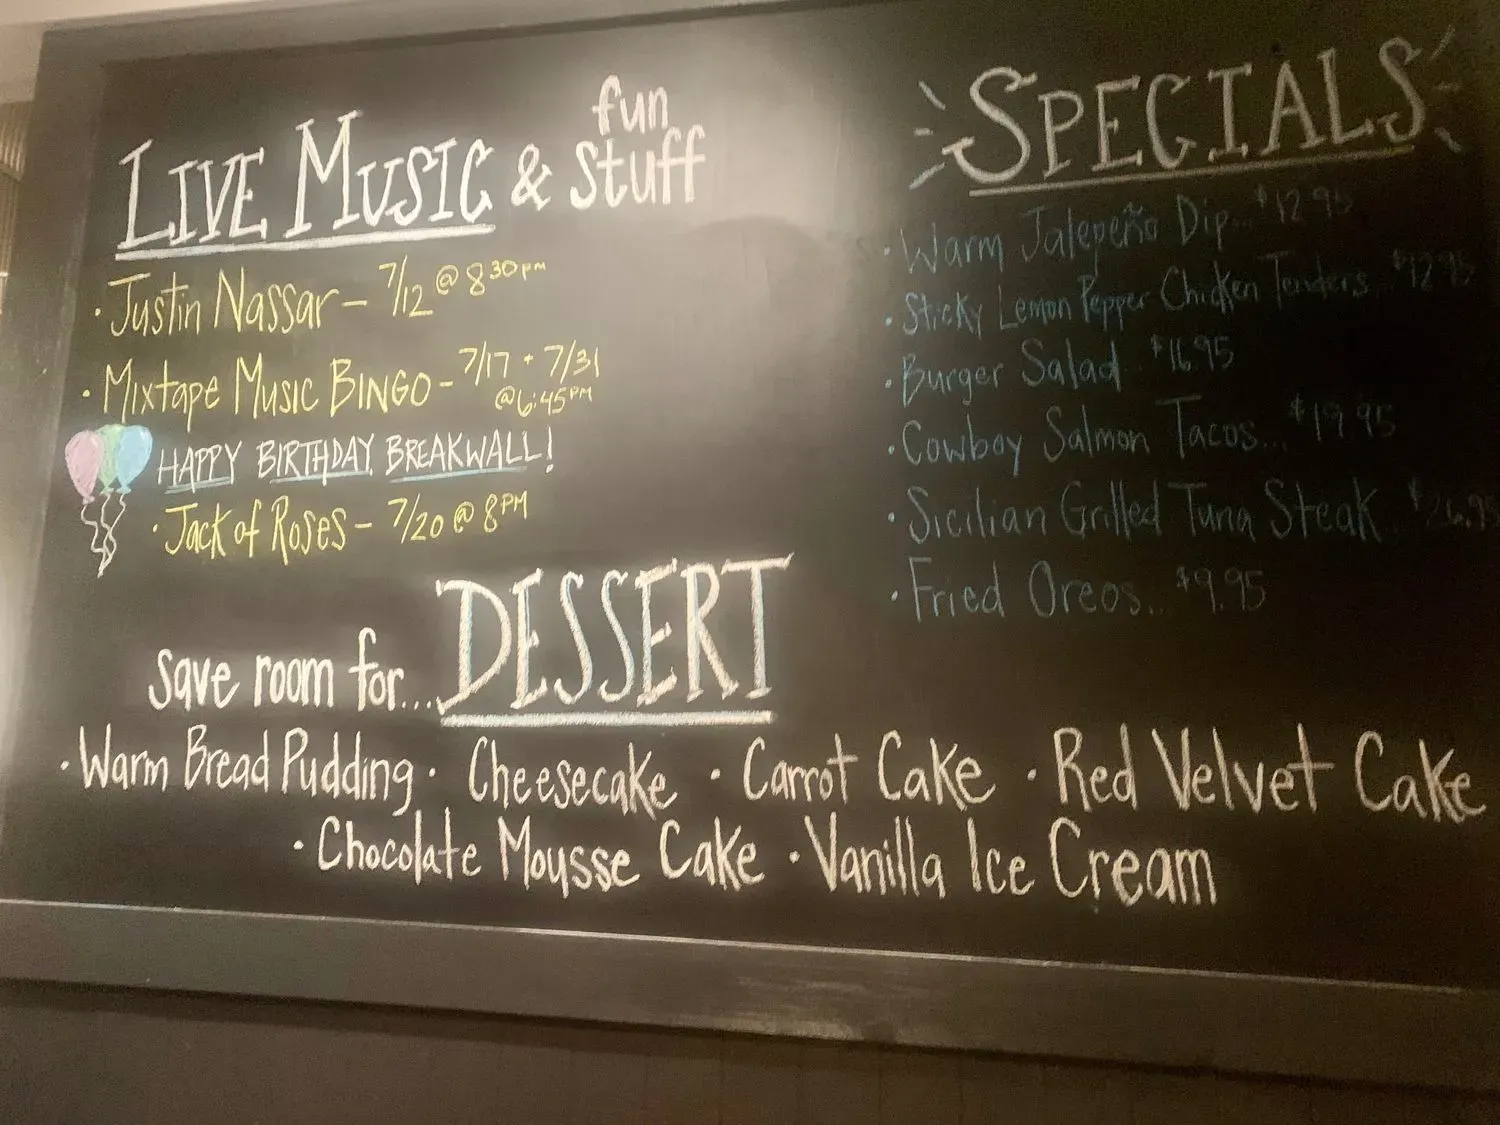 LIVE MUSIC & fun stuff
· Justin Nassar – 7/12 @ 8:30pm
· Mixtape Music BINGO – 7/17 + 7/31
@ 6:45PM
HAPPY BIRTHDAY BREAKWALL!
· Jack of Roses – 7/20 @ 8PM
SPECIALS
· Warm Jalepeño Dip... $12.95
· Sticky Lemon Pepper Chicken Tenders... $12.95
· Burger Salad... $16.95
· Cowboy Salmon Tacos... $19.95
· Sicilian Grilled Tuna Steak... $26.95
· Fried Oreos... $9.95
save room for... DESSERT
· Warm Bread Pudding · Cheesecake · Carrot Cake · Red Velvet Cake
· Chocolate Mousse Cake · Vanilla Ice Cream